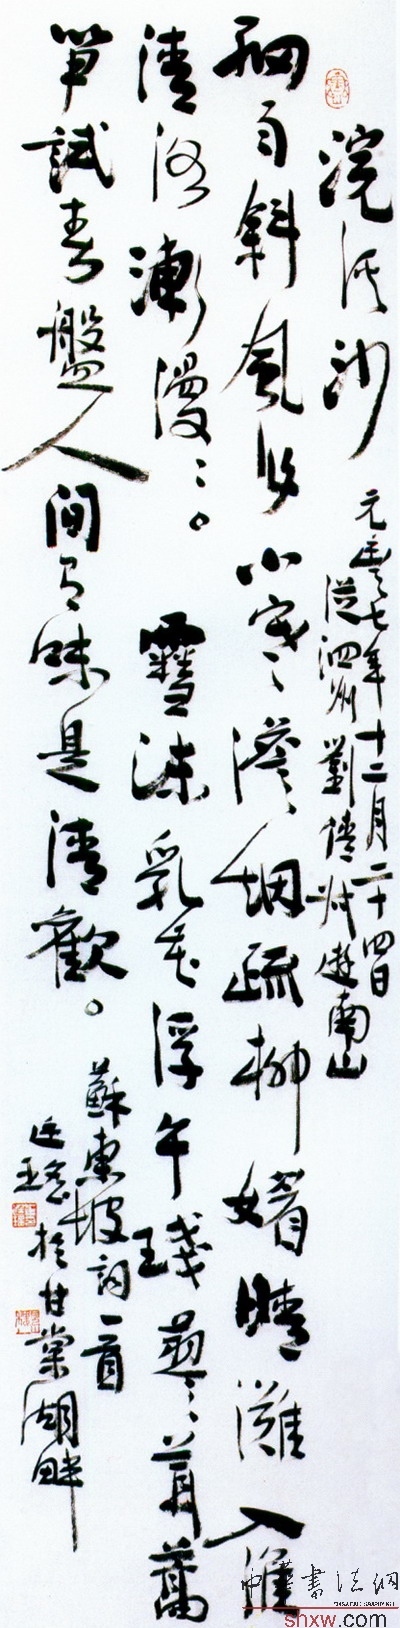 浣溪沙
元豐七年十二月二十四日
從泗州劉倩叔遊南山
細雨斜風作小寒淡烟疏柳媚晴灘入淮
清洛漸漫漫。 雪沫乳花浮午琖蓼茸蒿
筍試春盤人間有味是清歡。
蘇東坡詞一首
於甘棠湖畔
中华书法网
shxw.com